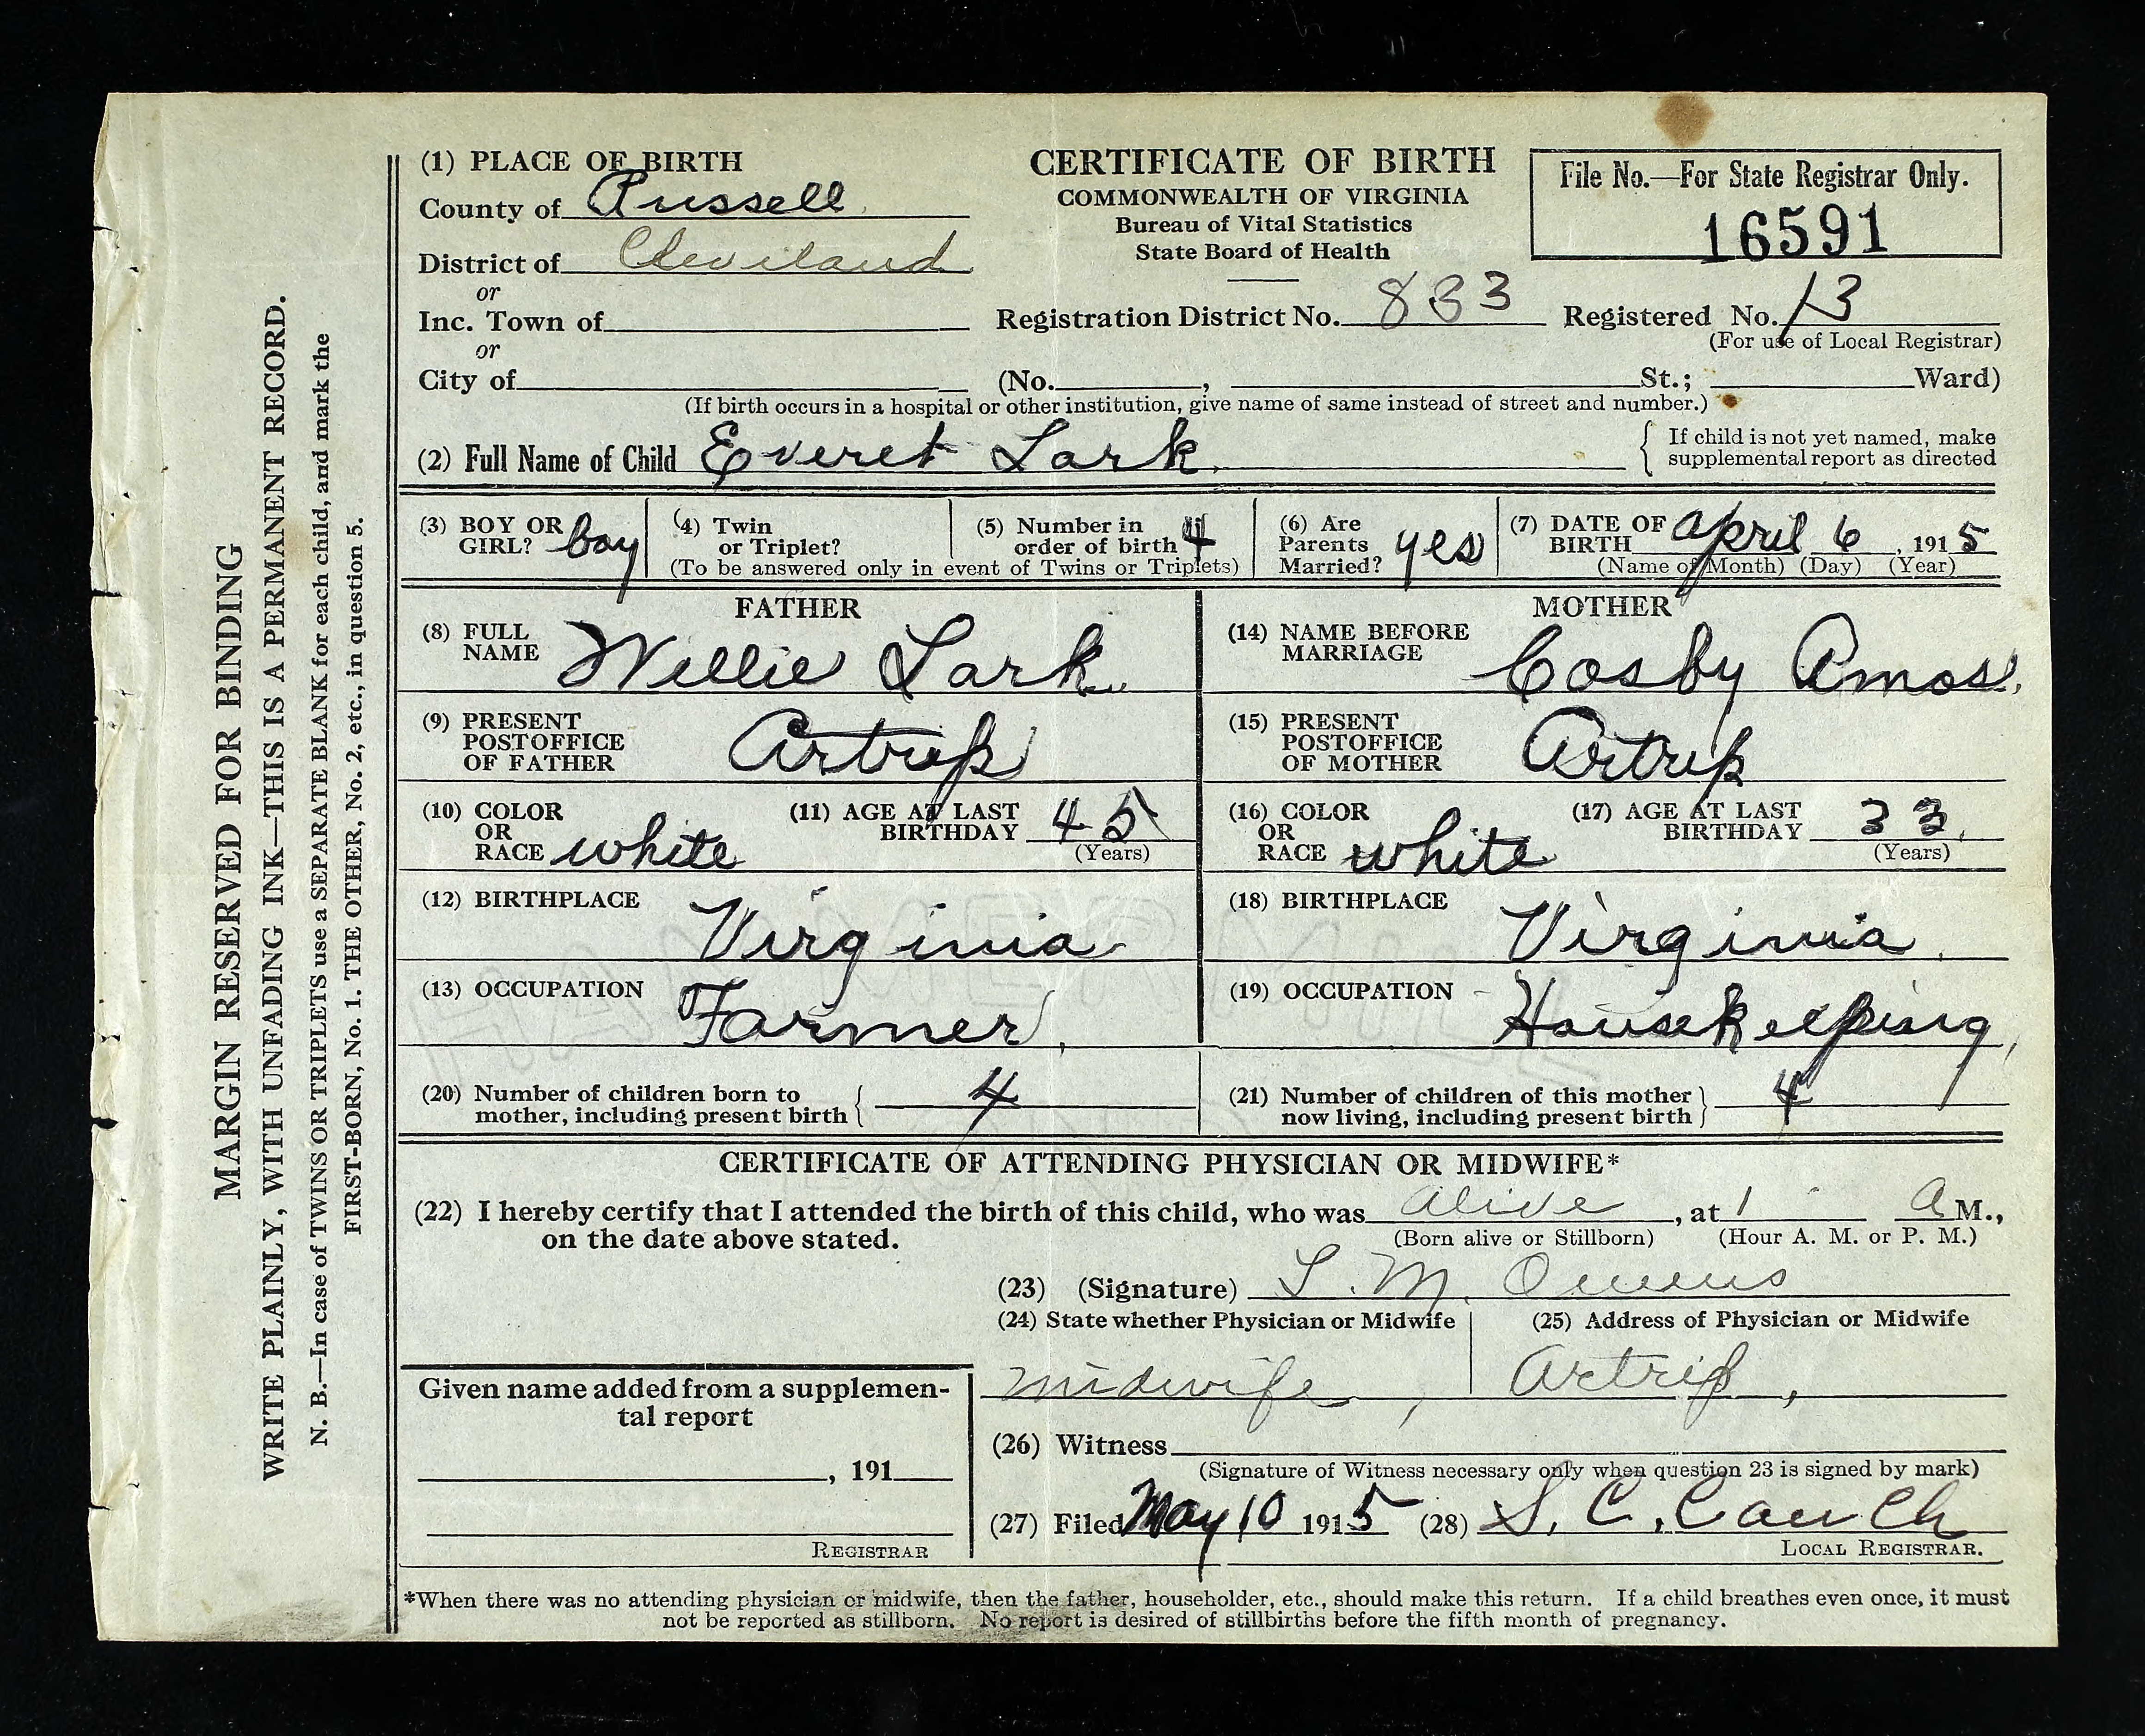 MARGIN RESERVED FOR BINDING
WRITE PLAINLY, WITH UNFADING INK—THIS IS A PERMANENT RECORD.
N. B.—In case of TWINS OR TRIPLETS use a SEPARATE BLANK for each child, and mark the
FIRST-BORN, No. 1. THE OTHER, No. 2, etc., in question 5.
(1) PLACE OF BIRTH
County of Russell
District of Cleveland
or
Inc. Town of
or
City of
CERTIFICATE OF BIRTH
COMMONWEALTH OF VIRGINIA
Bureau of Vital Statistics
State Board of Health
File No.—For State Registrar Only.
16591
Registration District No. 833 Registered No. 13
(For use of Local Registrar)
(No. , St.; Ward)
(If birth occurs in a hospital or other institution, give name of same instead of street and number.)
(2) Full Name of Child Everet Lark
If child is not yet named, make
supplemental report as directed
(3) BOY OR
GIRL? boy
(4) Twin
or Triplet?
(5) Number in
order of birth 4
(To be answered only in event of Twins or Triplets)
(6) Are
Parents
Married? yes
(7) DATE OF
BIRTH April 6, 1915
(Name of Month) (Day) (Year)
FATHER
(8) FULL
NAME Willie Lark
(9) PRESENT
POSTOFFICE
OF FATHER Artrip
(10) COLOR
OR
RACE white
(11) AGE AT LAST
BIRTHDAY 45
(Years)
(12) BIRTHPLACE Virginia
(13) OCCUPATION Farmer,
MOTHER
(14) NAME BEFORE
MARRIAGE Cosby Amos,
(15) PRESENT
POSTOFFICE
OF MOTHER Artrip
(16) COLOR
OR
RACE white
(17) AGE AT LAST
BIRTHDAY 33.
(Years)
(18) BIRTHPLACE Virginia.
(19) OCCUPATION Housekeeping,
(20) Number of children born to
mother, including present birth 4
(21) Number of children of this mother
now living, including present birth 4
HAMMERMILL
BOND
CERTIFICATE OF ATTENDING PHYSICIAN OR MIDWIFE*
(22) I hereby certify that I attended the birth of this child, who was alive, at 1 A M.,
on the date above stated. (Born alive or Stillborn) (Hour A. M. or P. M.)
(23) (Signature) L. M. Owens
(24) State whether Physician or Midwife
midwife,
(25) Address of Physician or Midwife
Artrip,
(26) Witness
(Signature of Witness necessary only when question 23 is signed by mark)
(27) Filed May 10 1915 (28) S. C. Couch
LOCAL REGISTRAR.
Given name added from a supplemen-
tal report
, 191
REGISTRAR
*When there was no attending physician or midwife, then the father, householder, etc., should make this return. If a child breathes even once, it must
not be reported as stillborn. No report is desired of stillbirths before the fifth month of pregnancy.